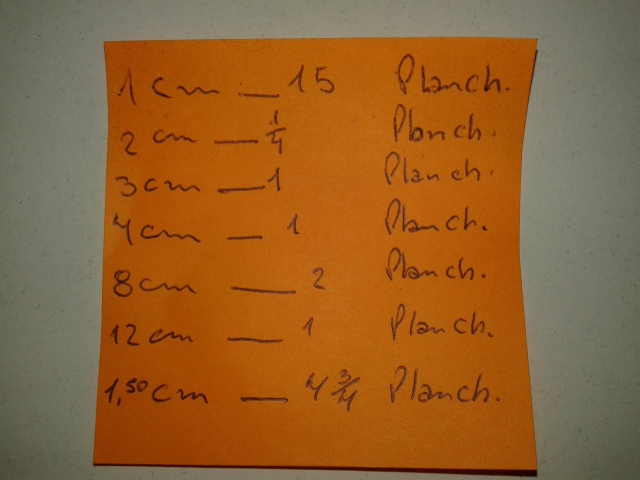 1 cm — 15 Planch.
2 cm — 1/4 Planch.
3 cm — 1 Planch.
4 cm — 1 Planch.
8 cm — 2 Planch.
12 cm — 1 Planch.
1,50 cm — 4 3/4 Planch.